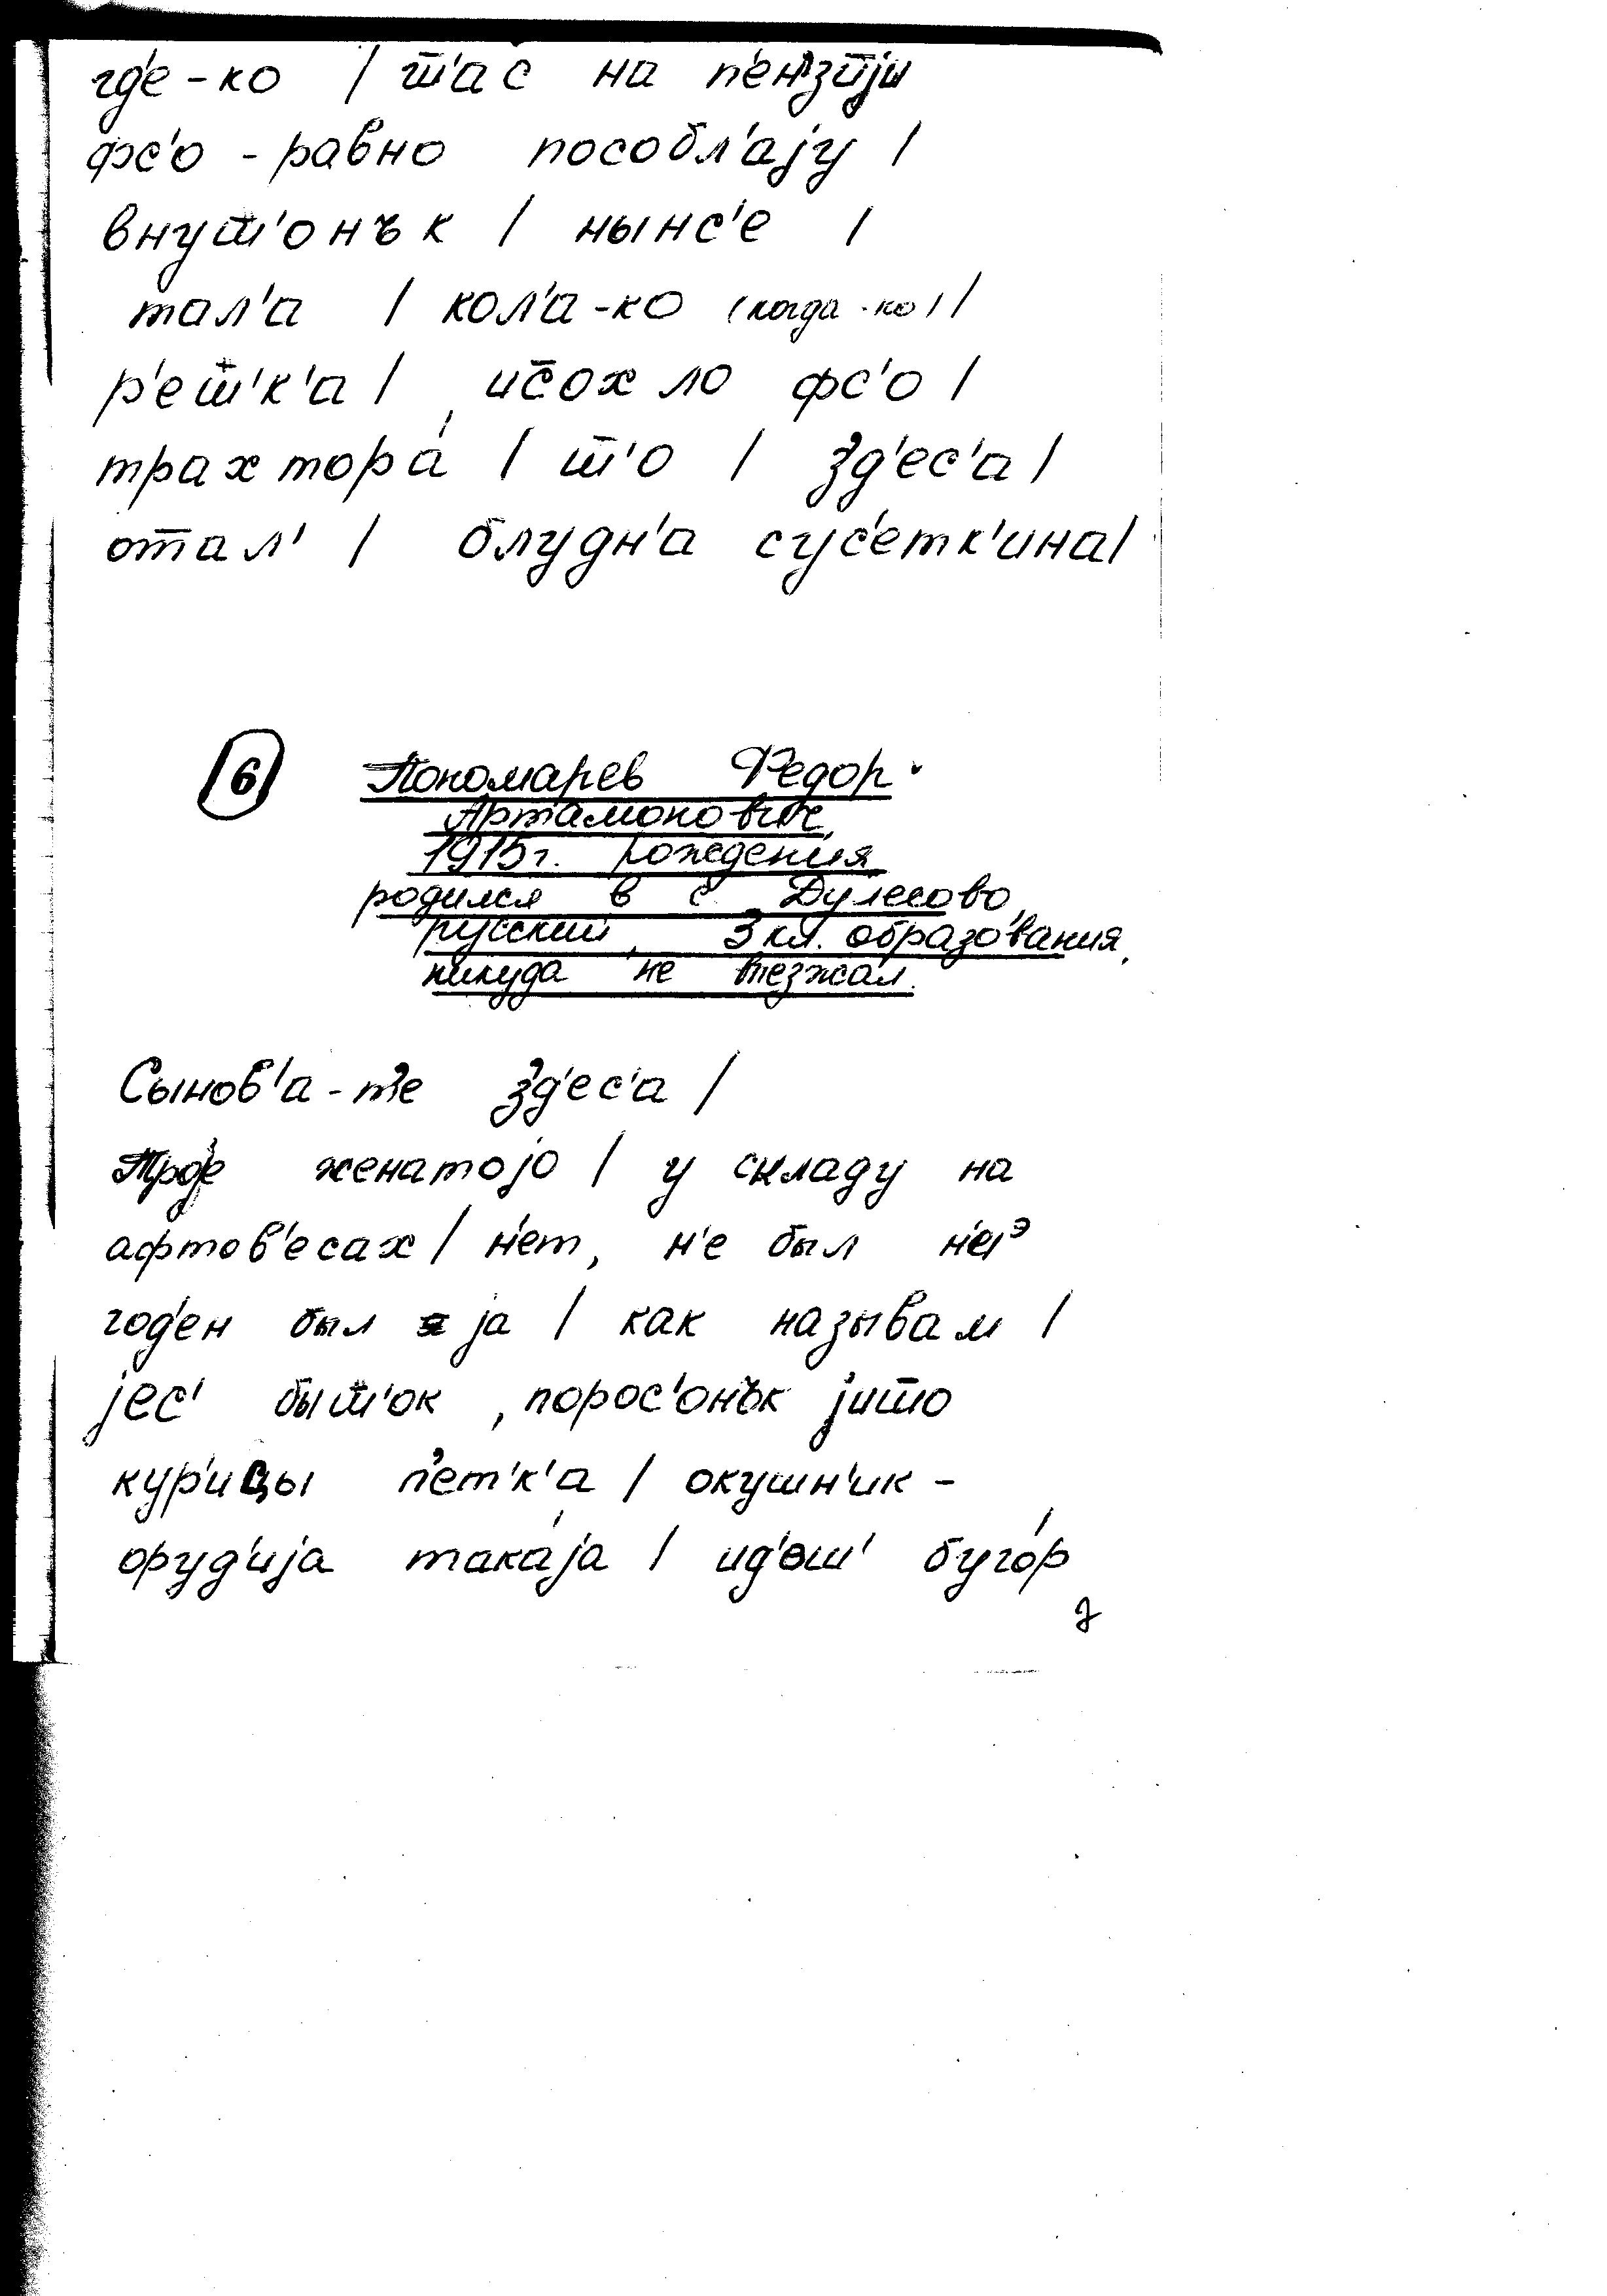 гд'е-ко / т̅'ас на п'ен'зиjи
фс'о - равно пособл'аjу /
внут̅'онък / нынс'е /
тал'а / кол'а-ко (когда-ко) /
р'ет̅'к'а / ис̅охло фс'о /
трахтора́ / т̅'о / зд'ес'а /
отал' / блудн'а сус'етк'ина /
6 Пономарев Федор
Артамонович,
1915 г. рождения
родился в с. Дулесово,
русский, 3 кл. образования,
никуда не выезжал.
Сынов'а-т'е зд'ес'а /
Троjе женатоjо / у складу на
афтов'есах / н'ет, н'е был н'еэ
год'ен был jа / как называм /
jес' быт̅'ок, порос'онък jит̅о
кур'ицы п'ет'к'а / окушн'ик -
оруд'иjа така́jа / ид'ош' буго́р